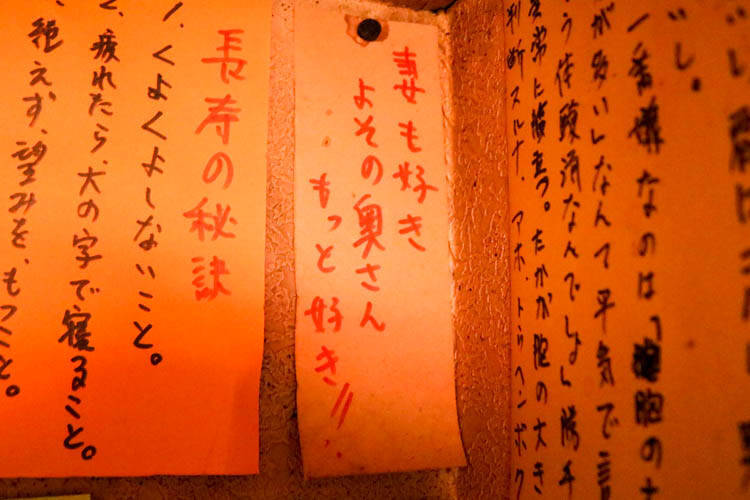 し。
一番嫌なのは「
が多いしなんて平気で言
う 体験済なんでしょ」勝手
異常に腹立つ。たかが胞の大き
判断スルナ、アホ、トウヘンボク
妻も好き
よその奥さん
もっと好き!!
長寿の秘訣
1、くよくよしないこと。
2、疲れたら、大の字で寝ること。
、絶えず、望みを、もつこと。